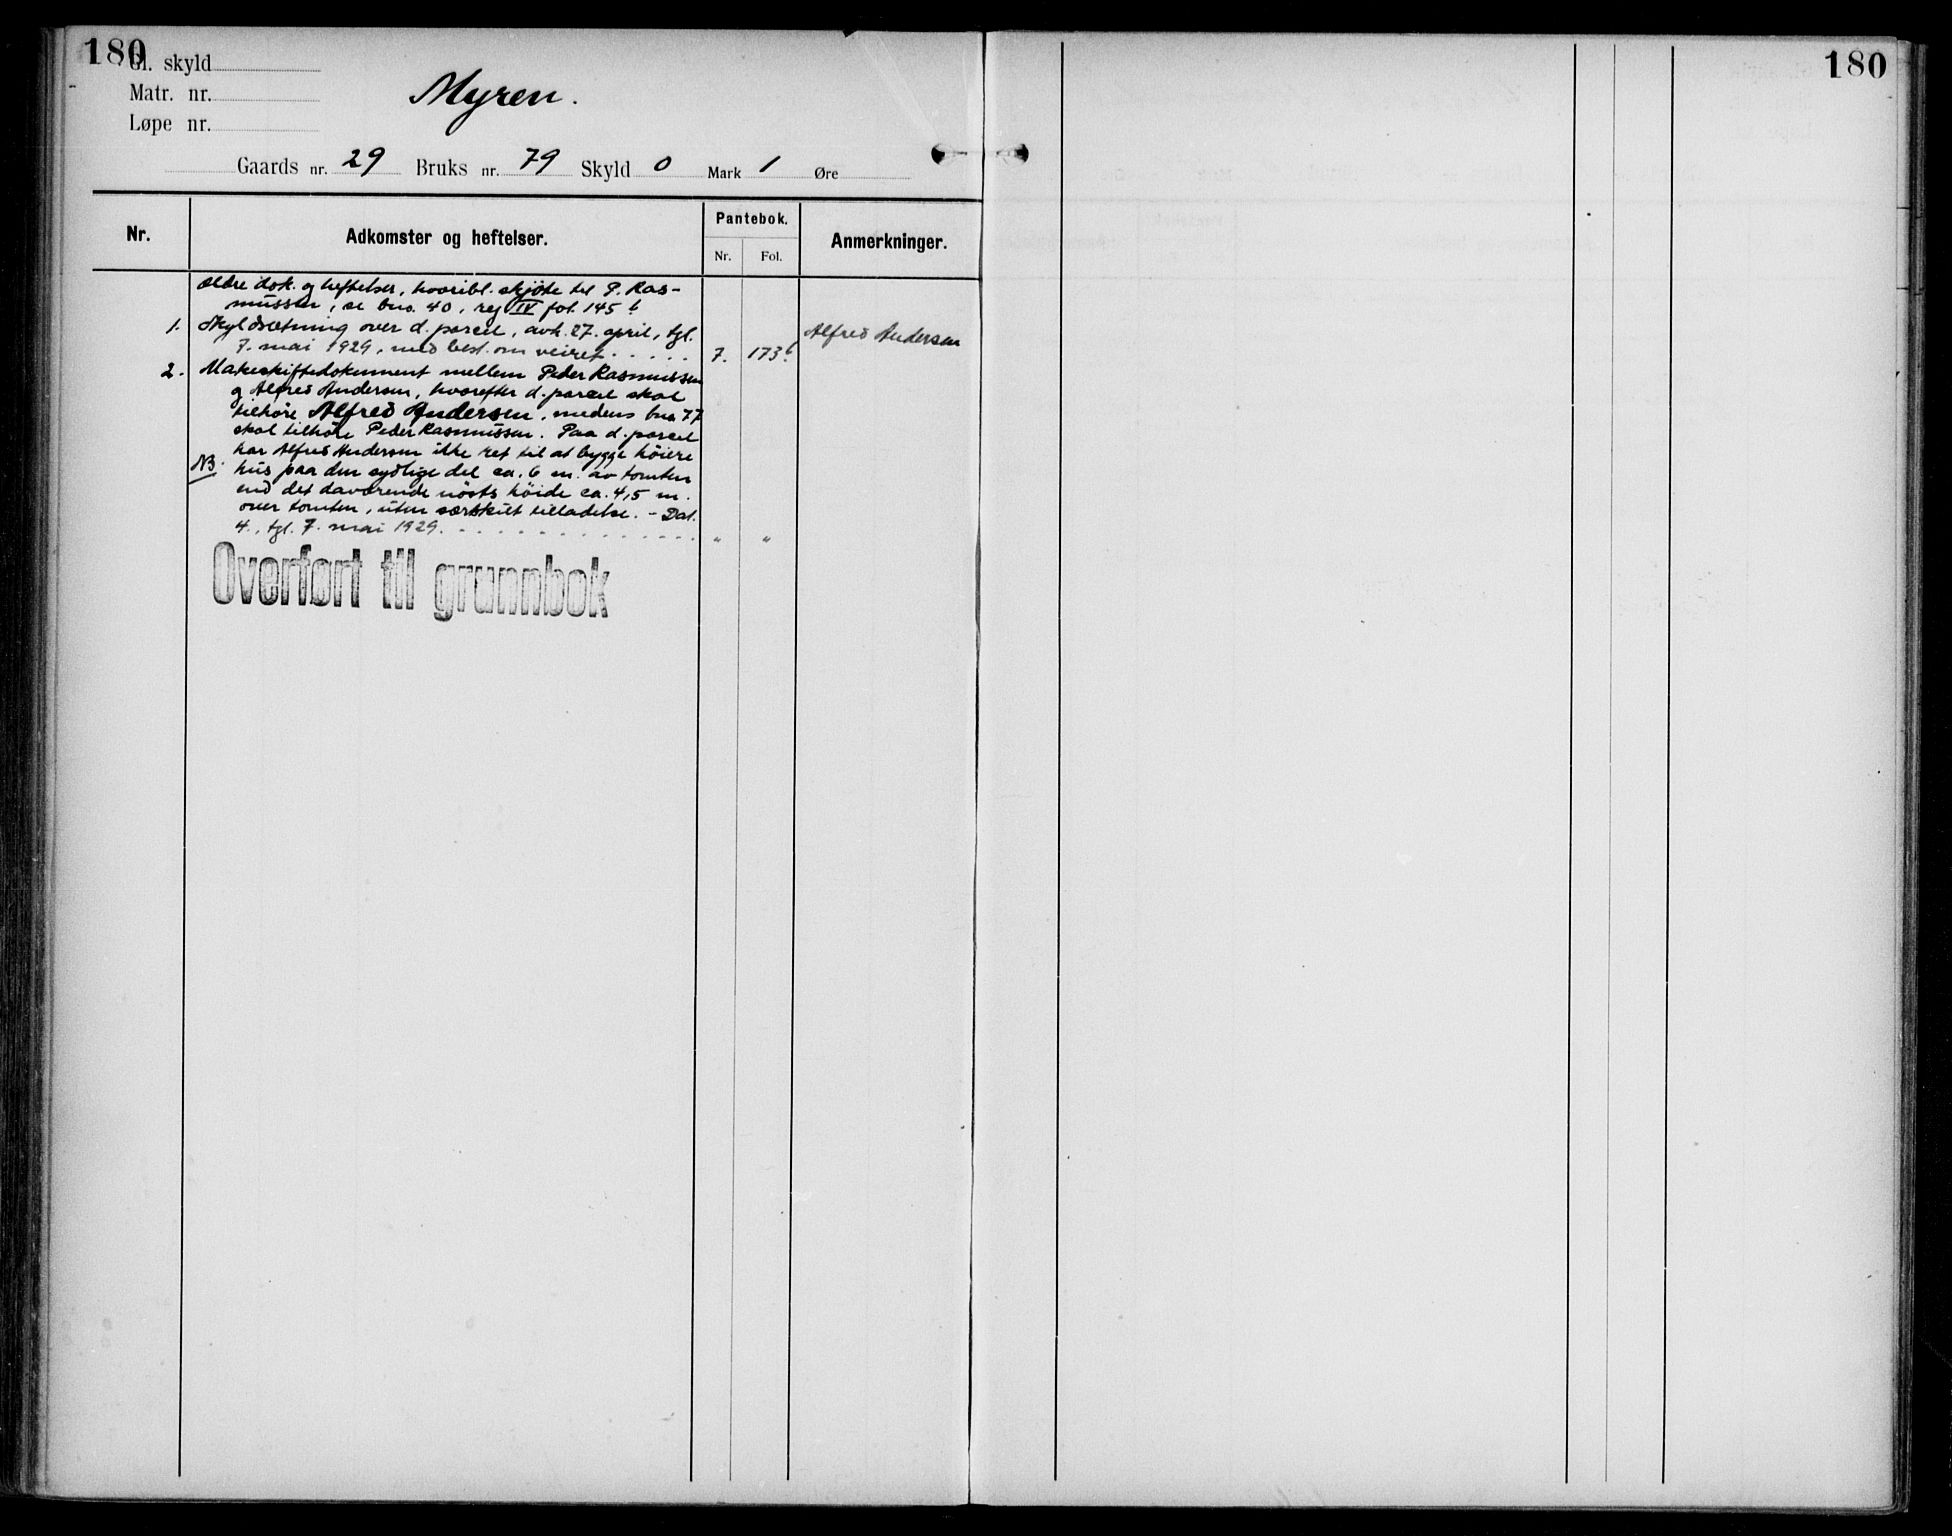 180
Gl. skyld
Matr. nr.
Løpe nr.
Myren.
Gaards nr. 29 Bruks nr. 79 Skyld 0 Mark 1 Øre
Nr.
Adkomster og heftelser.
Pantebok.
Nr. Fol.
Anmerkninger.
Ældre dok. og heftelser, hvoribl. skjøte til P. Ras-
mussen, se bno. 40, reg IV fol. 145 b
1. Skyldsætning over d. parcel, avh. 27. april, tgl.
7. mai 1929, med best. om veiret . . . . . 7. 173 b
Alfred Andersen
2. Makeskiftedokument mellem Peder Rasmussen
og Alfred Andersen, hvorefter d. parcel skal
tilhøre Alfred Andersen, medens bno 77
skal tilhøre Peder Rasmussen. Paa d. parcel
har Alfred Andersen ikke ret til at bygge høiere
NB. hus paa den sydlige del ca. 6 m. av tomten
end det daværende nøsts høide ca. 4,5 m.
over tomten, uten særskilt tilladelse. - Dat.
4., tgl. 7. mai 1929. . . . . . . . . . . . . . " "
Overført til grunnbok
180